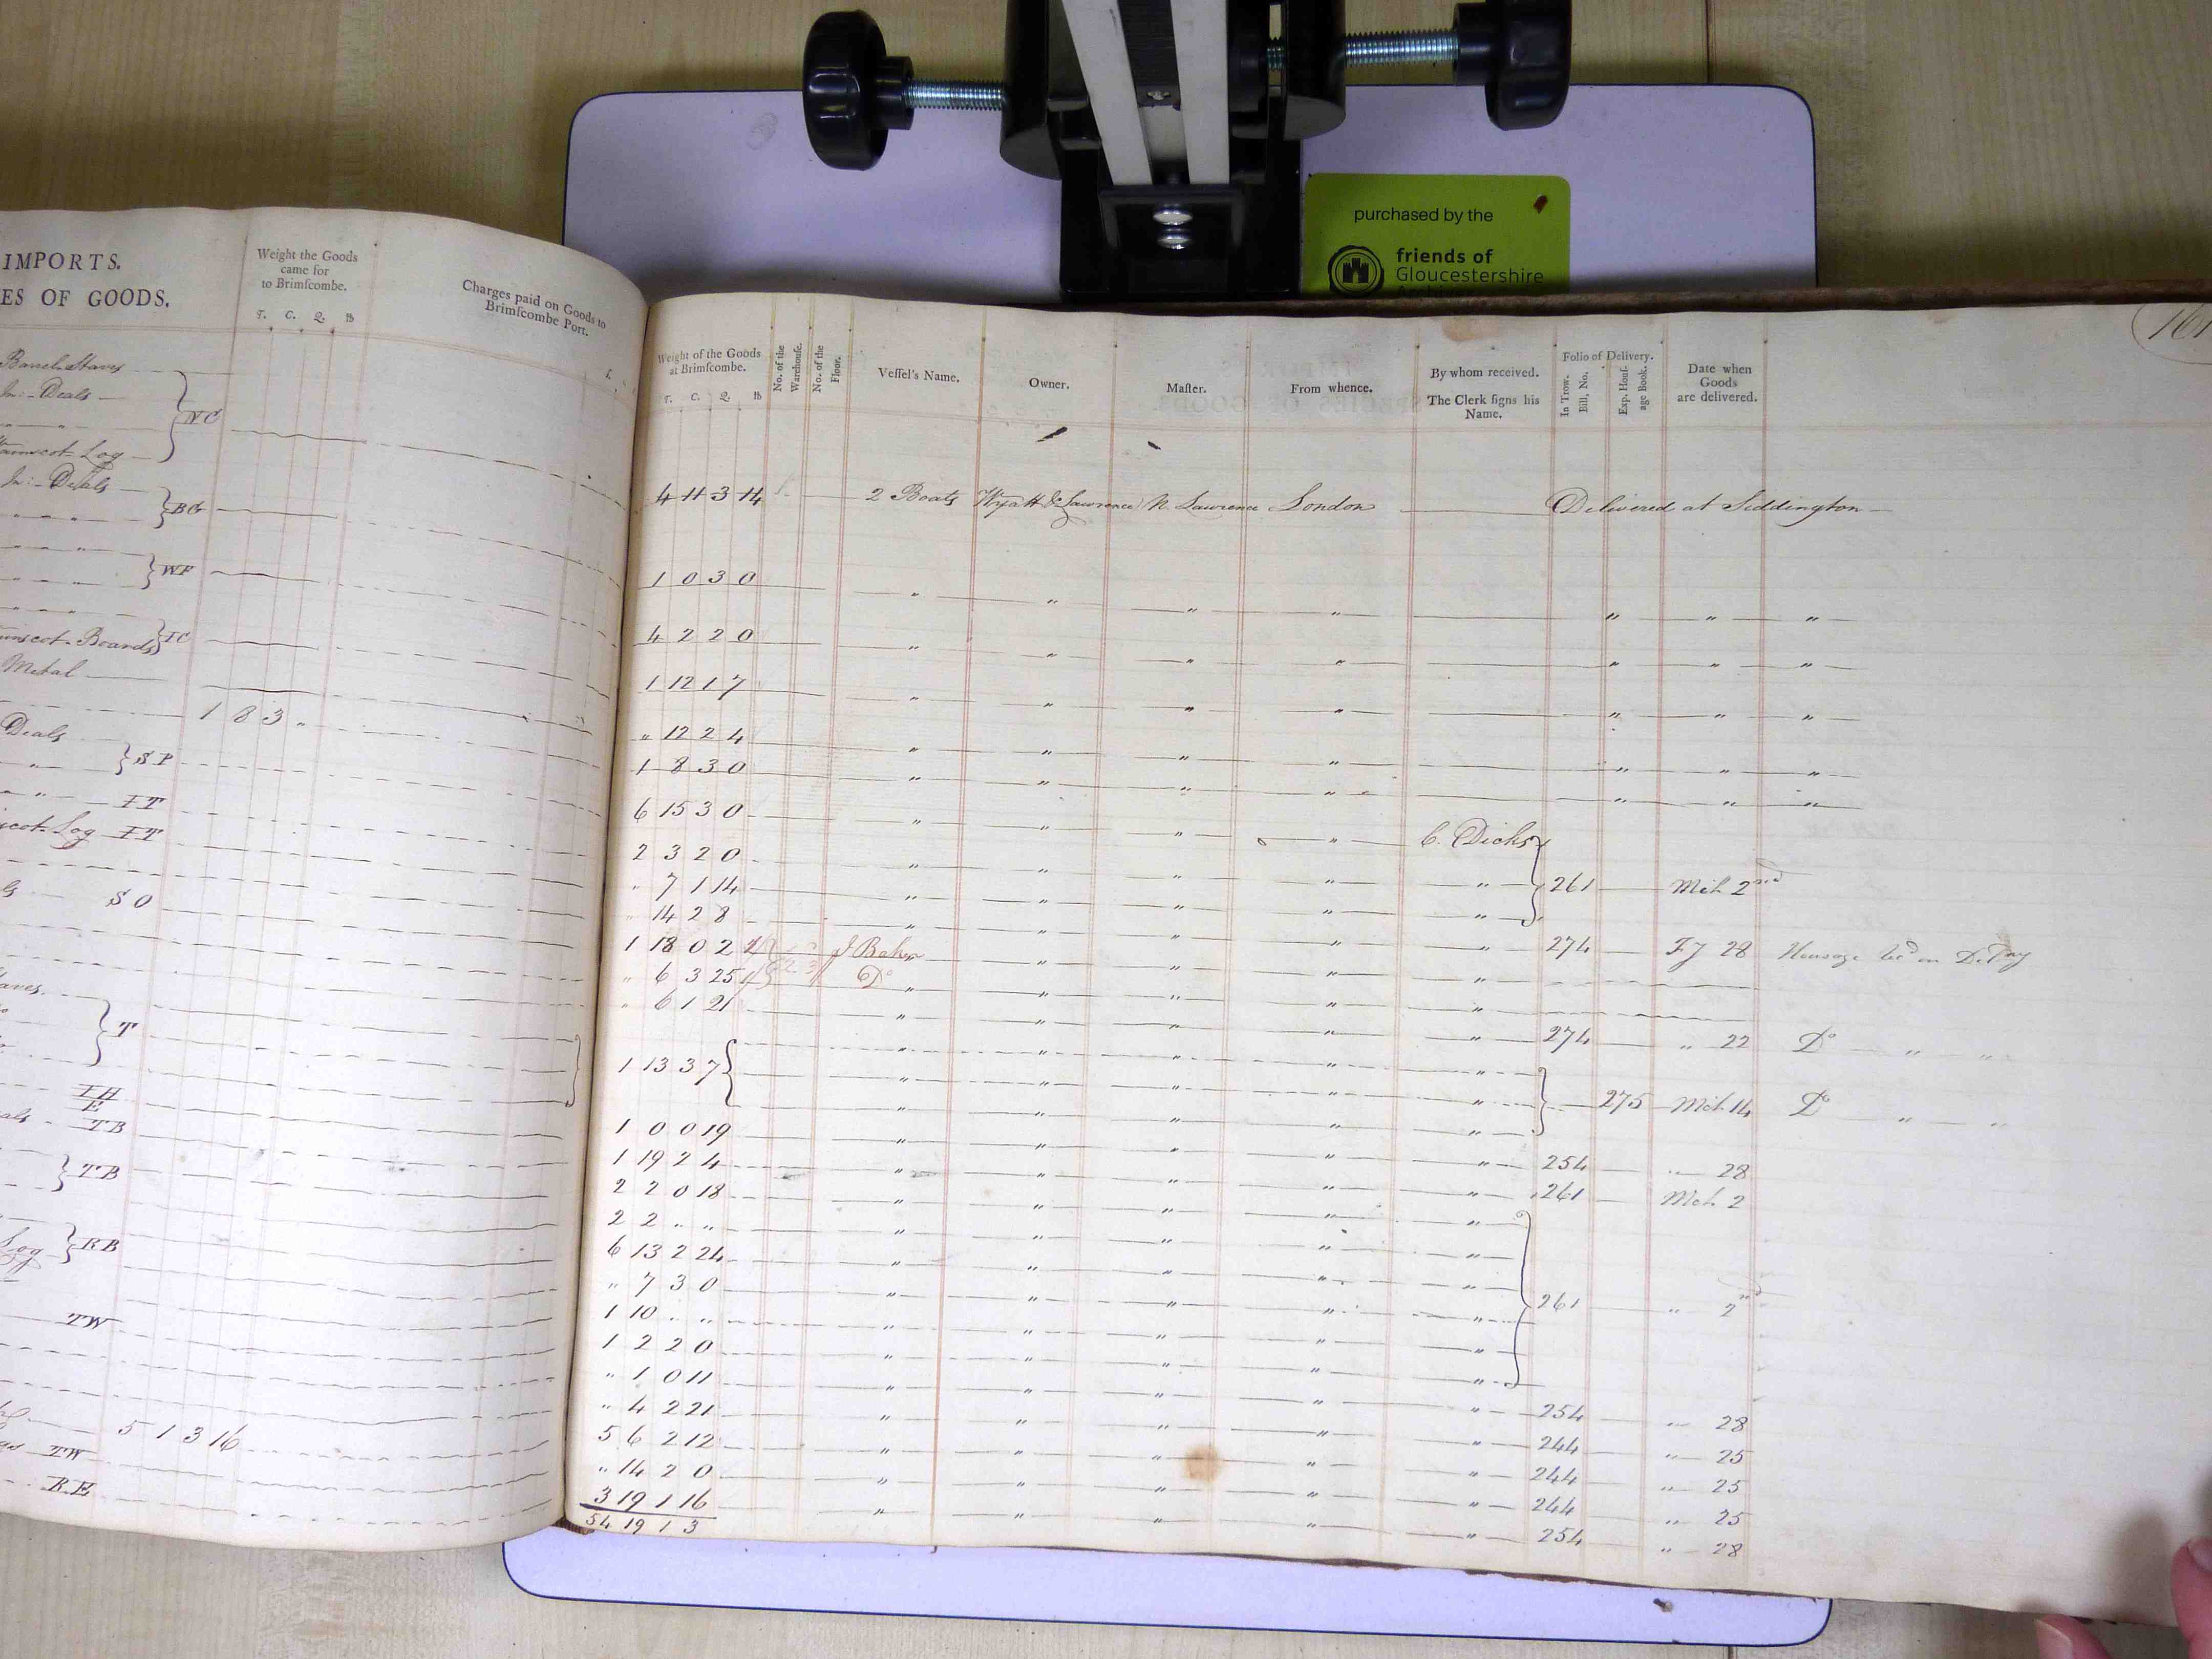 purchased by the
friends of
Gloucestershire
IMPORTS.
ES OF GOODS.
Weight the Goods
came for
to Brimſcombe.
T. C. Q. lb
Charges paid on Goods to
Brimſcombe Port.
Barrel Staves
In: Deals
" "
Log
NC
In: Deals
" " "
BG
" " "
" " "
WF
" " "
Boards
IC
Metal
1 8 3 "
Deals
"
SP
" " IT
Log IT
SO
T
IH
E
TB
TB
Log
RB
TW
5 1 3 16
TW
RE
Weight of the Goods
at Brimſcombe.
T. C. Q. lb
No. of the
Warehouſe.
No. of the
Floor.
Veſſel's Name.
Owner.
Maſter.
From whence.
By whom received.
The Clerk ſigns his
Name.
Folio of Delivery.
In Trow.
Bill, No.
Exp. Houſ-
age Book.
Date when
Goods
are delivered.
4 11 3 14 2 Boats Wyatt & Lawrence N. Lawrence London Delivered at Siddington
1 0 3 0 " " " " " " "
4 2 2 0 " " " " " " "
1 12 1 7 " " " " " " "
" 12 2 4 " " " " " " "
1 8 3 0 " " " " " " "
6 15 3 0 " " " " C. Dicks
2 3 2 0 " " " " " 261 Mch 2nd
" 7 1 14 " " " " "
" 14 2 8 " " " " " 274 Fy 28
1 18 0 2 J Baker " " " " "
" 6 3 25 Do " " " " "
" 6 1 21 " " " " " 274 " 22 Do " "
1 13 3 7 " " " " " 275 Mch 14 Do " "
1 0 0 19 " " " " " 254 " 28
1 19 2 4 " " " " " 261 Mch 2
2 2 0 18 " " " " "
2 2 " " " " " " "
6 13 2 24 " " " " "
" 7 3 0 " " " " " 261 " 2nd
1 10 " " " " " " "
1 2 2 0 " " " " "
" 1 0 11 " " " " " 254 " 28
" 4 2 21 " " " " " 244 " 25
5 6 2 12 " " " " " 244 " 25
" 14 2 0 " " " " " 244 " 25
3 19 1 16 " " " " " 254 " 28
54 19 1 3